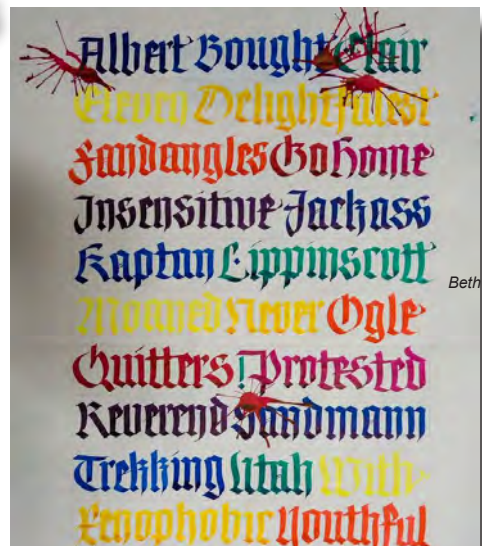 Albert Bought Clair
Eleven Delightfulest
Fandangles Go Home
Insensitive Jackass
Kaptan Lippinscott
Moaned Never Ogle
Quitters! Protested
Reverend Sandmann
Trekking Utah With-
Xenophobic Youthful
Beth